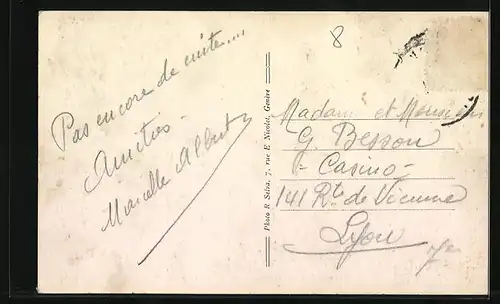 Pas encore de cuite....
Amitiés -
Marcelle Albert
Photo R. Sriva, 7, rue E. Nicolet, Genève
8
Madame et Monsieur
G. Besson
- Casino -
141 Rte de Vienne
Lyon
7e